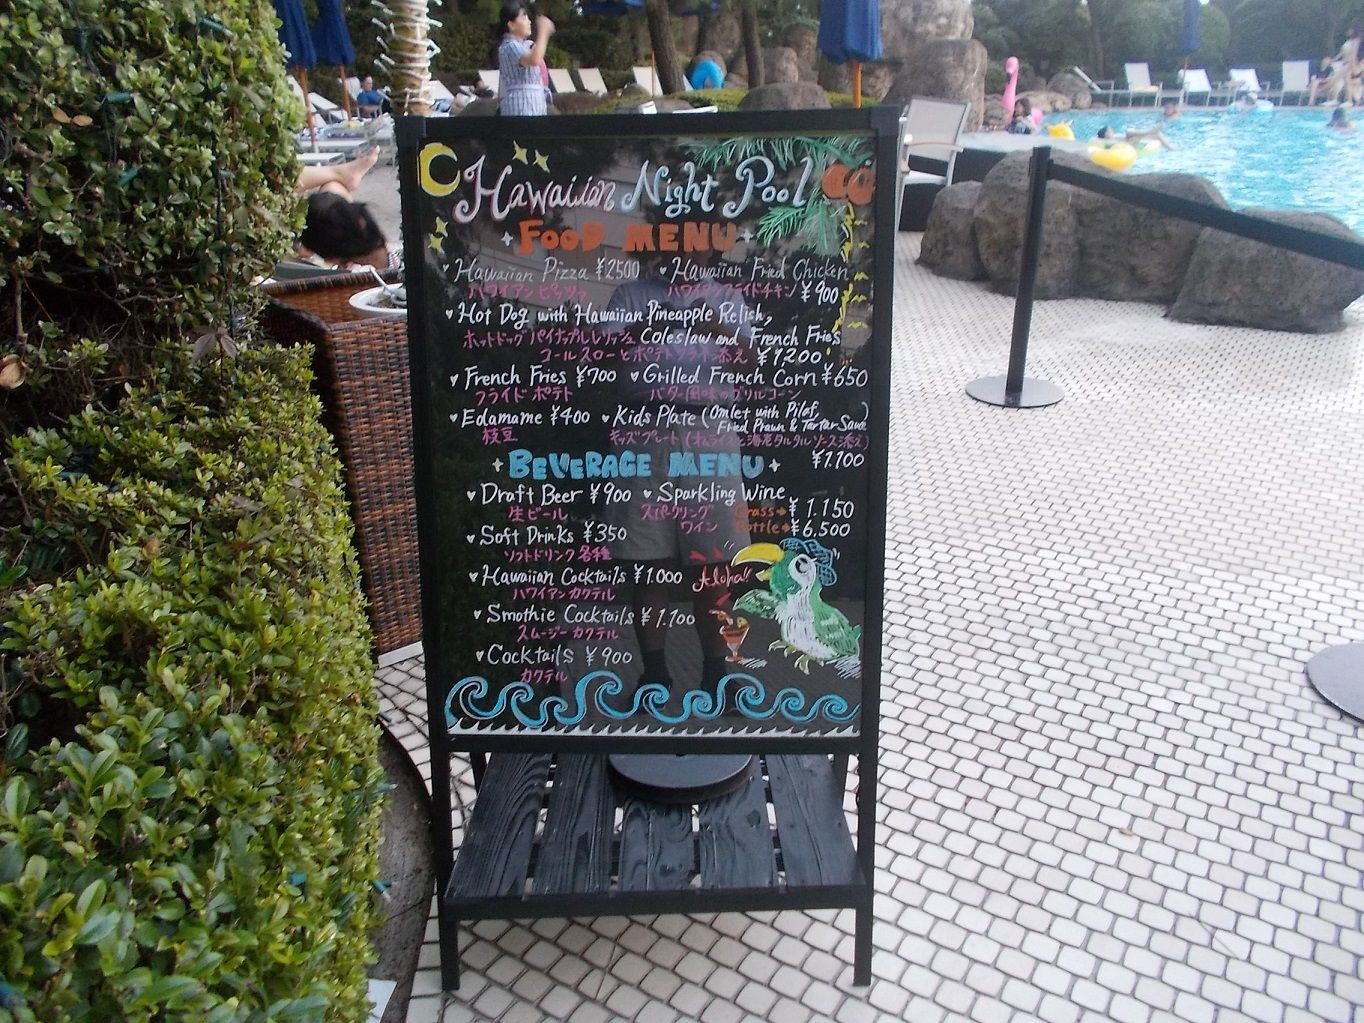 Hawaiian Night Pool
FOOD MENU
Hawaiian Pizza ¥2500 Hawaiian Fried Chicken
ハワイアン ピッツァ ハワイアンフライドチキン ¥900
Hot Dog with Hawaiian Pineapple Relish,
ホットドッグ パイナップルレリッシュ Coleslaw and French Fries
コールスローとポテトフライ添え ¥1200
French Fries ¥700 Grilled French Corn ¥650
フライドポテト バター風味のグリルコーン
Edamame ¥400 Kids Plate (Omlet with Pilaf,
Fried Prawn & Tartar Sauce)
枝豆 キッズプレート (オムライスと海老タルタルソース添え)
¥1.100
BEVERAGE MENU
Draft Beer ¥900 Sparkling Wine
生ビール スパークリング Grass→¥1.150
ワイン Bottle→¥6.500
Soft Drinks ¥350
ソフトドリンク各種
Hawaiian Cocktails ¥1.000
ハワイアンカクテル
Aloha!!
Smothie Cocktails ¥1.100
スムージーカクテル
Cocktails ¥900
カクテル